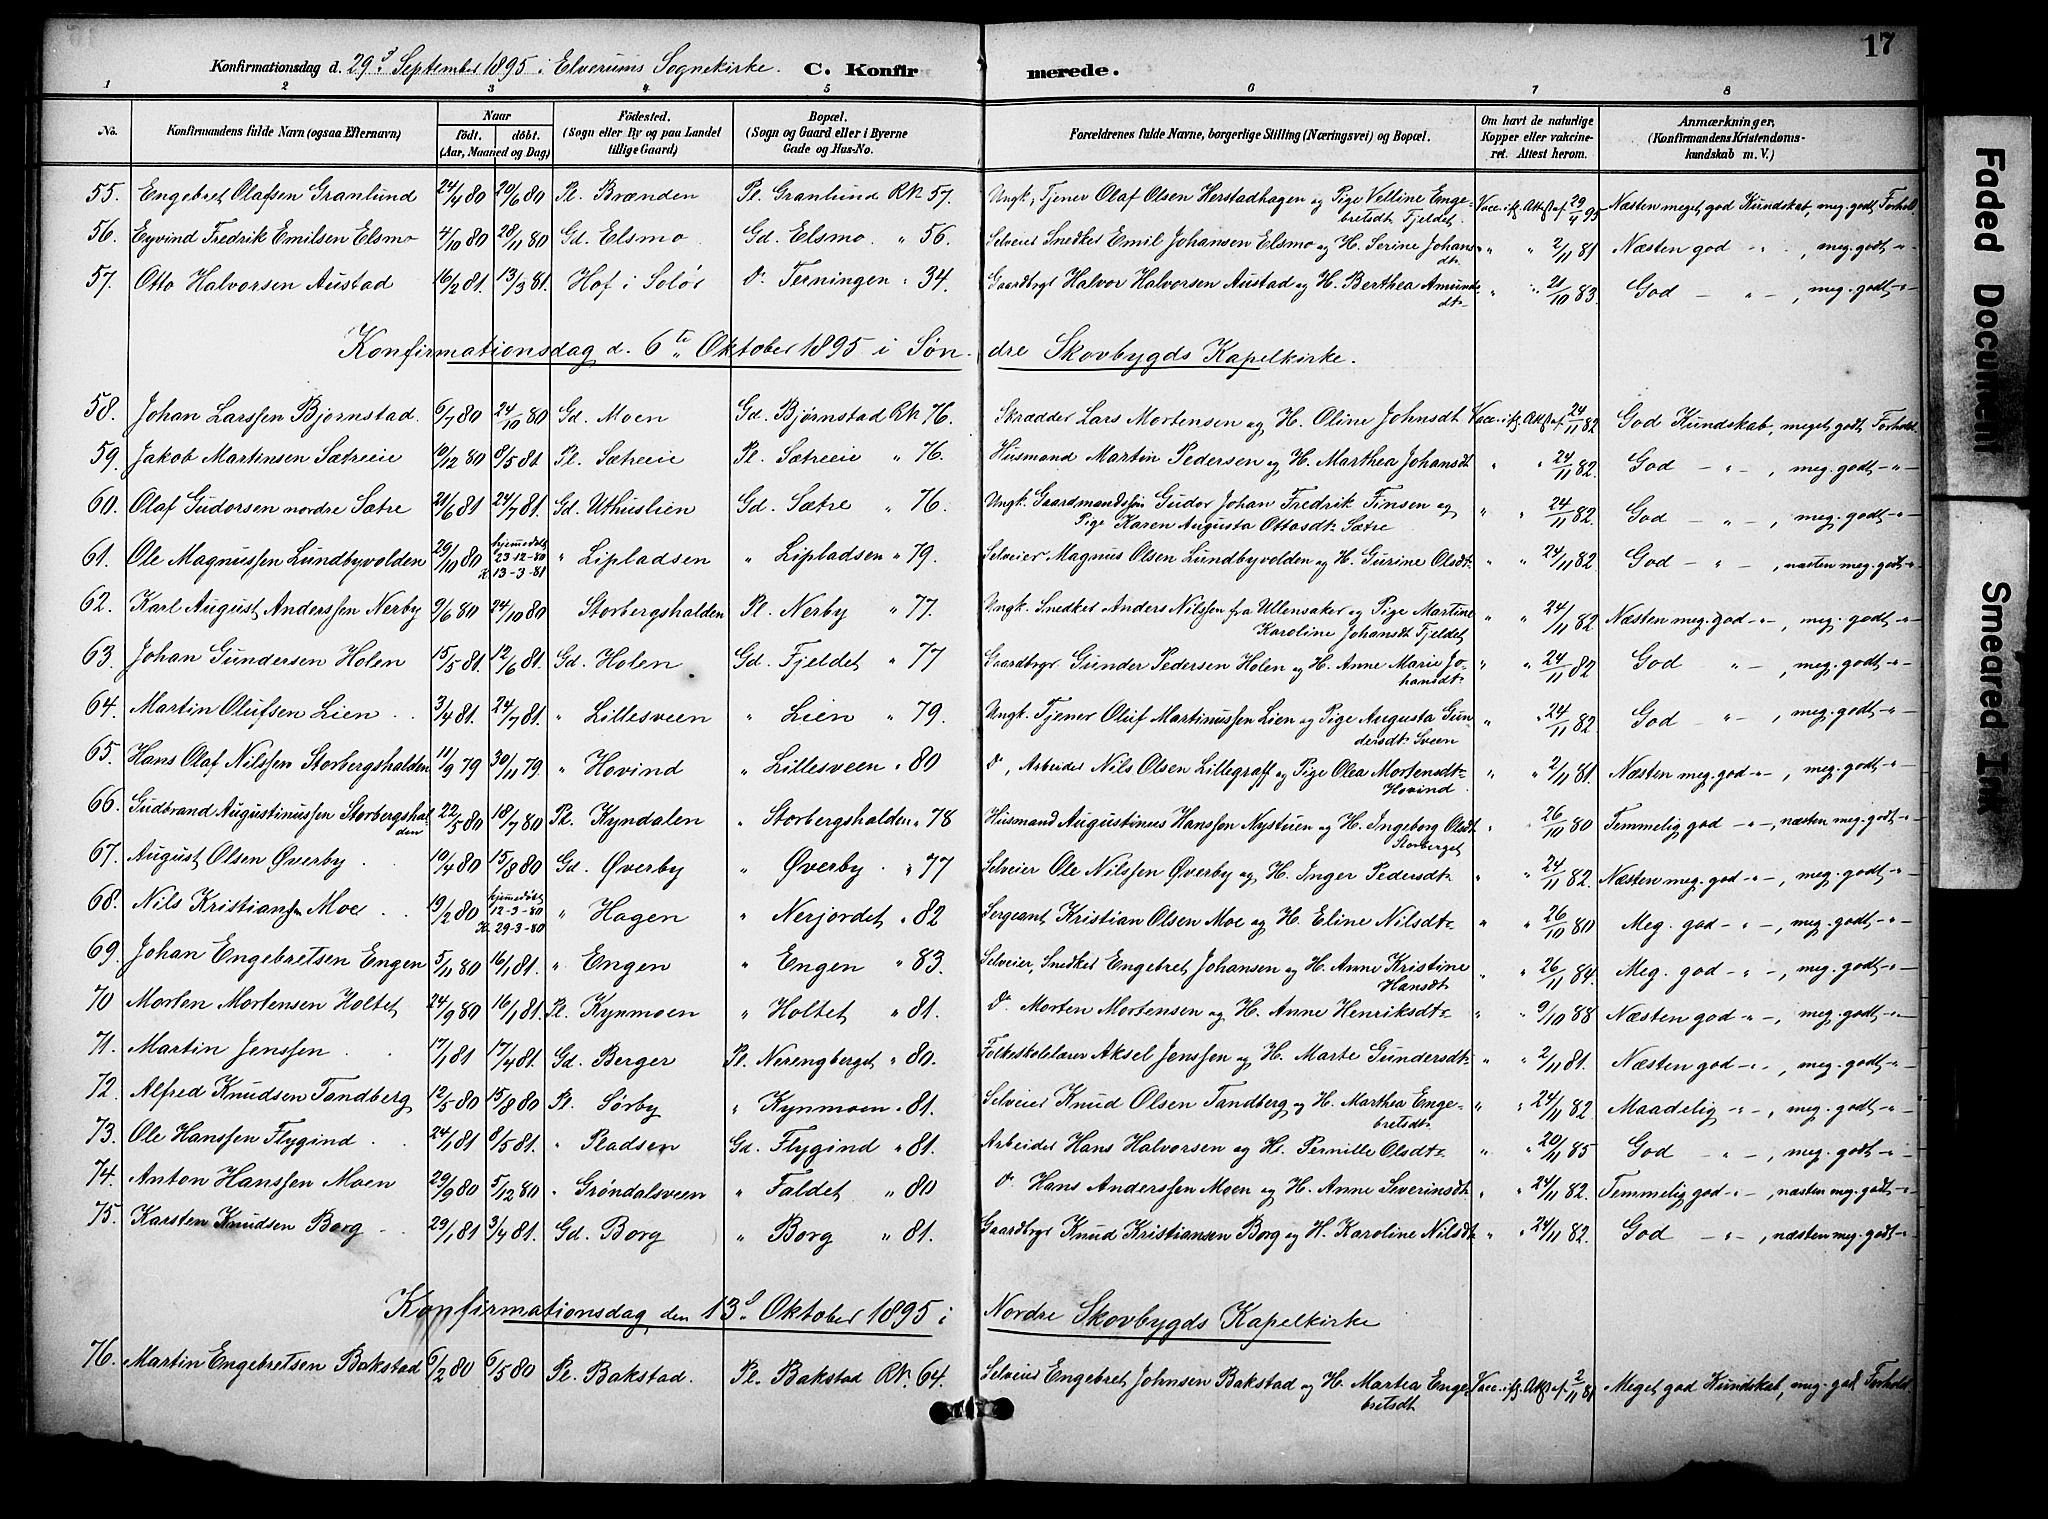 17
Konfirmationsdag d. 29de September 1895 i Elverums Sognekirke. C. Konfirmerede.
1 2 3 4 5 6 7 8
No. Konfirmandens fulde Navn (ogsaa Efternavn) Naar födt. döbt. (Aar, Maaned og Dag) Födested. (Sogn eller By og paa Landet tillige Gaard) Bopæl. (Sogn og Gaard eller i Byerne Gade og Hus-No. Forældrenes fulde Navne, borgerlige Stilling (Næringsvei) og Bopæl. Om havt de naturlige Kopper eller vakcineret. Attest herom. Anmærkninger, (Konfirmandens Kristendomskundskab m. V.)
55. Engebret Olafsen Granlund 24/4 80 20/6 80 Pl. Brænden Pl. Granlund RN. 57. Ungk., Tjener Olaf Olsen Herstadhagen og Pige Velline Engebretsdt. Fjeldet. Vacc. if. Att. af 29/4 95 Næsten meget god Kundskab, meg. godt Forhold
56. Eyvind Fredrik Emilsen Elsmo 4/10 80 28/11 80 Gd. Elsmo Gd. Elsmo " 56. Selveier Snedker Emil Johansen Elsmo og H. Serine Johansdt. " " 2/11 81 Næsten god - " - , meg. godt - " -
57. Otto Halvorsen Austad 16/2 81. 13/3 81. Hof i Solør do Terningen " 34. Gaardbrgr Halvor Halvorsen Austad og H. Berthea Amundsdt. " " 21/10 83. God - " - , meg. godt - " -
Konfirmationsdag d. 6te Oktober 1895 i Søndre Skovbygds Kapelkirke.
58. Johan Larssen Bjørnstad. 6/7 80 24/10 80 Gd. Moen Gd. Bjørnstad RN. 76. Skrædder Lars Mortensen og H. Oline Johnsdt. Vacc. if. Att. af 24/11 82 God Kundskab, meget godt Forhold
59. Jakob Martinsen Sætreeie 10/12 80 8/5 81 Pl. Sætreeie Pl. Sætreeie " 76. Husmand Martin Pedersen og H. Marthea Johansdt " " 24/11 82. God - " - , meg. godt - " -
60. Olaf Gudorsen nordre Sætre 21/6 81 24/7 81. Gd. Uthuslien Gd. Sætre " 76. Ungk. Gaardmandssøn Gudor Johan Fredrik Finsen og Pige Karen Augusta Ottosdt. Sætre " " 24/11 82. God - " - , meg. godt - " -
61. Ole Magnussen Lundbyvolden 29/10 80 hjemmedøbt 23-12-80 K. 13-3-81 " Lipladsen " Lipladsen " 79. Selveier Magnus Olsen Lundbyvolden og H. Gurine Olsdt. " " 24/11 82. God - " - , næsten meg. godt - " -
62. Karl August Anderssen Nerby 9/6 80 24/10 80 Storbergshalden Pl. Nerby " 77. Ungk. Snedker Anders Nilssen fra Ullensaker og Pige Martine Karoline Johansdt Fjeldet " " 24/11 82 Næsten meg. god - " - , meg. godt - " -
63. Johan Gundersen Holen 15/5 81. 12/6 81. Gd. Holen Gd. Fjeldet " 77 Gaardbrgr Gunder Pedersen Holen og H. Anne Marie Johansdt. " " 24/11 82 God " - , meg. godt - " -
64. Martin Olufsen Lien 3/4 81. 24/7 81. " Lillesveen " Lien " 79. Ungk. Tjener Oluf Martinussen Lien og Pige Augusta Gundersdt. Sveen " " 24/11 82. God " - , meg. godt - " -
65. Hans Olaf Nilssen Storbergshalden 11/9 79 30/11 79. " Hovind " Lillesveen " 80 do, Arbeider Nils Olsen Lillegraff og Pige Olea Mortensdt. Hovind " " 2/11 81. Næsten meg. god - " - , meg. godt - " -
66. Gudbrand Augustinussen Storbergshalden 22/5 80 18/7 80 Pl. Kyndalen " Storbergshalden " 78 Husmand Augustinus Hanssen Nystuen og H. Ingeborg Olsdt. Storberget " " 26/10 80 Temmelig god - " - , næsten meg. godt - " -
67. August Olsen Øverby 10/4 80 15/8 80 Gd. Øverby " Øverby " 77 Selveier Ole Nilssen Øverby og H. Inger Pedersdt. " " 24/11 82. Næsten meg. god - " - , meg. godt - " -
68. Nils Kristiansen Moe 19/2 80 hjemmedøbt 12-3-80 K. 29-3-80 " Hagen " Nerjordet " 82 Sergeant Kristian Olsen Moe og H. Eline Nilsdt. " " 26/10 80 Meg. god - " - , meg. godt - " -
69. Johan Engebretsen Engen 5/11 80 16/1 81. " Engen " Engen " 83. Selveier, Snedker Engebret Johansen og H. Anne Kristine Hansdt. " " 26/11 84. Meg. god - " - , meg. godt - " -
70 Morten Mortensen Holtet 24/9 80 16/1 81. Pl. Kynmoen " Holtet " 81. do Morten Mortensen og H. Anne Henriksdt. " " 9/10 88 Næsten god - " - , meg. godt - " -
71. Martin Jenssen 17/1 81 17/4 81. Gd. Berger Pl. Nerengberget " 80. Folkeskolelærer Aksel Jenssen og H. Marte Gundersdt. " " 2/11 81. Næsten god - " - , meg. godt - " -
72. Alfred Knudsen Tandberg 12/5 80 15/8 80 Pl. Sørby " Kynmoen " 81. Selveier Knud Olsen Tandberg og H. Marthea Engebretsdt. " " 24/11 82. Maadelig - " - , meg. godt - " -
73. Ole Hanssen Flygind 24/1 81 8/5 81. " Pladsen Gd. Flygind " 81. Arbeider Hans Halvorsen og H. Pernille Olsdt. " " 20/11 85 God - " - , meg. godt - " -
74. Anton Hanssen Moen 29/9 80 5/12 80 " Grøndalsveen " Faldet " 80 do Hans Anderssen Moen og H. Anne Severinsdt. " " 24/11 82. Temmelig god - " - , næsten meg. godt - " -
75. Karsten Knudsen Borg 29/1 81 3/4 81. Gd. Borg " Borg " 81. Gaardbrgr Knud Kristiansen Borg og H. Karoline Nilsdt. " " 24/11 82. God - " - , næsten meg. godt - " -
Konfirmationsdag den 13de Oktober 1895 i Nordre Skovbygds Kapelkirke
76. Martin Engebretsen Bakstad 6/2 80 6/5 80 Pl. Bakstad. Pl. Bakstad RN. 64. Selveier Engebret Johnsen Bakstad og H. Martea Engebretsdt Vacc. if. Att. af 2/11 81 Meget god Kundskab, meg. god Forhold
Faded Document
Smeared Ink